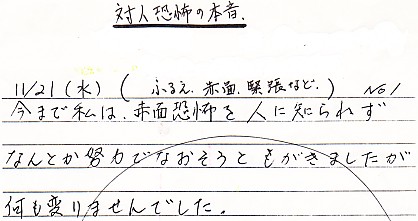 対人恐怖の本音.
11/21(水)(ふるえ.赤面.緊張など.) No1
今まで私は.赤面恐怖を人に知られず
なんとか努力でなおそうともがきましたが
何も変りませんでした。